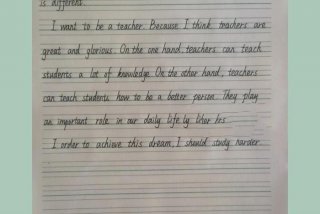 is different.
I want to be a teacher. Because I think, teachers are
great and glorious. On the one hand, teachers can teach
students a lot of knowledge. On the other hand, teachers
can teach students how to be a better person. They play
an important role in our daily life by
I order to achieve this dream, I should study harder.